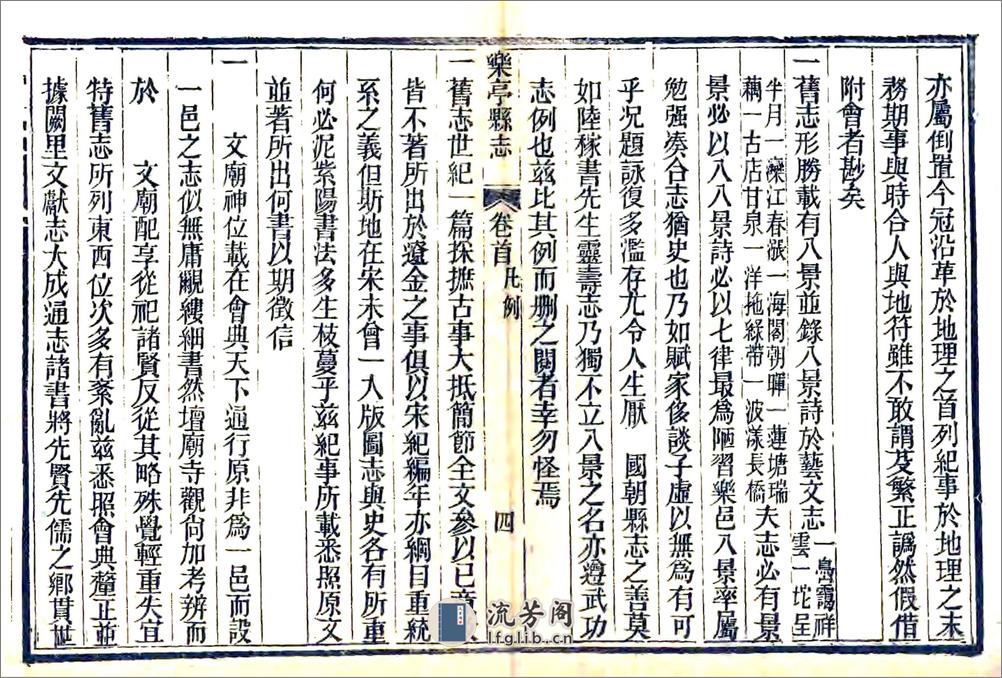 亦屬倒置今冠沿革於地理之首列紀事於地理之末
務期事與時合人與地符雖不敢謂芟繁正譌然假借
附會者尠矣
一舊志形勝載有八景並錄八景詩於藝文志一島靄祥
雲一坨呈
半月一灤江春漲一海閣朝暉一蓮塘瑞
藕一古店甘泉一洋拖綠帶一波漾長橋夫志必有景
景必以八八景詩必以七律最為陋習樂邑八景率屬
勉强湊合志猶史也乃如賦家侈談子虛以無為有可
乎況題詠復多濫存尤令人生厭 國朝縣志之善莫
如陸稼書先生靈壽志乃獨不立八景之名亦遵武功
志例也兹比其例而删之閱者幸勿怪焉
樂亭縣志 卷首 凡例 四
一舊志世紀一篇採摭古事大抵簡節全文參以已意
皆不著所出於遼金之事俱以宋紀編年亦綱目重統
系之義但斯地在宋未曾一入版圖志與史各有所重
何必泥紫陽書法多生枝蔓乎兹紀事所載悉照原文
並著所出何書以期徵信
一 文廟神位載在會典天下通行原非為一邑而設
一邑之志似無庸覼縷細書然壇廟寺觀尙加考辨而
於 文廟配享從祀諸賢反從其略殊覺輕重失宜
特舊志所列東西位次多有紊亂兹悉照會典釐正並
據闕里文獻志大成通志諸書將先賢先儒之鄉貫世
流芳阁
lfglib.com